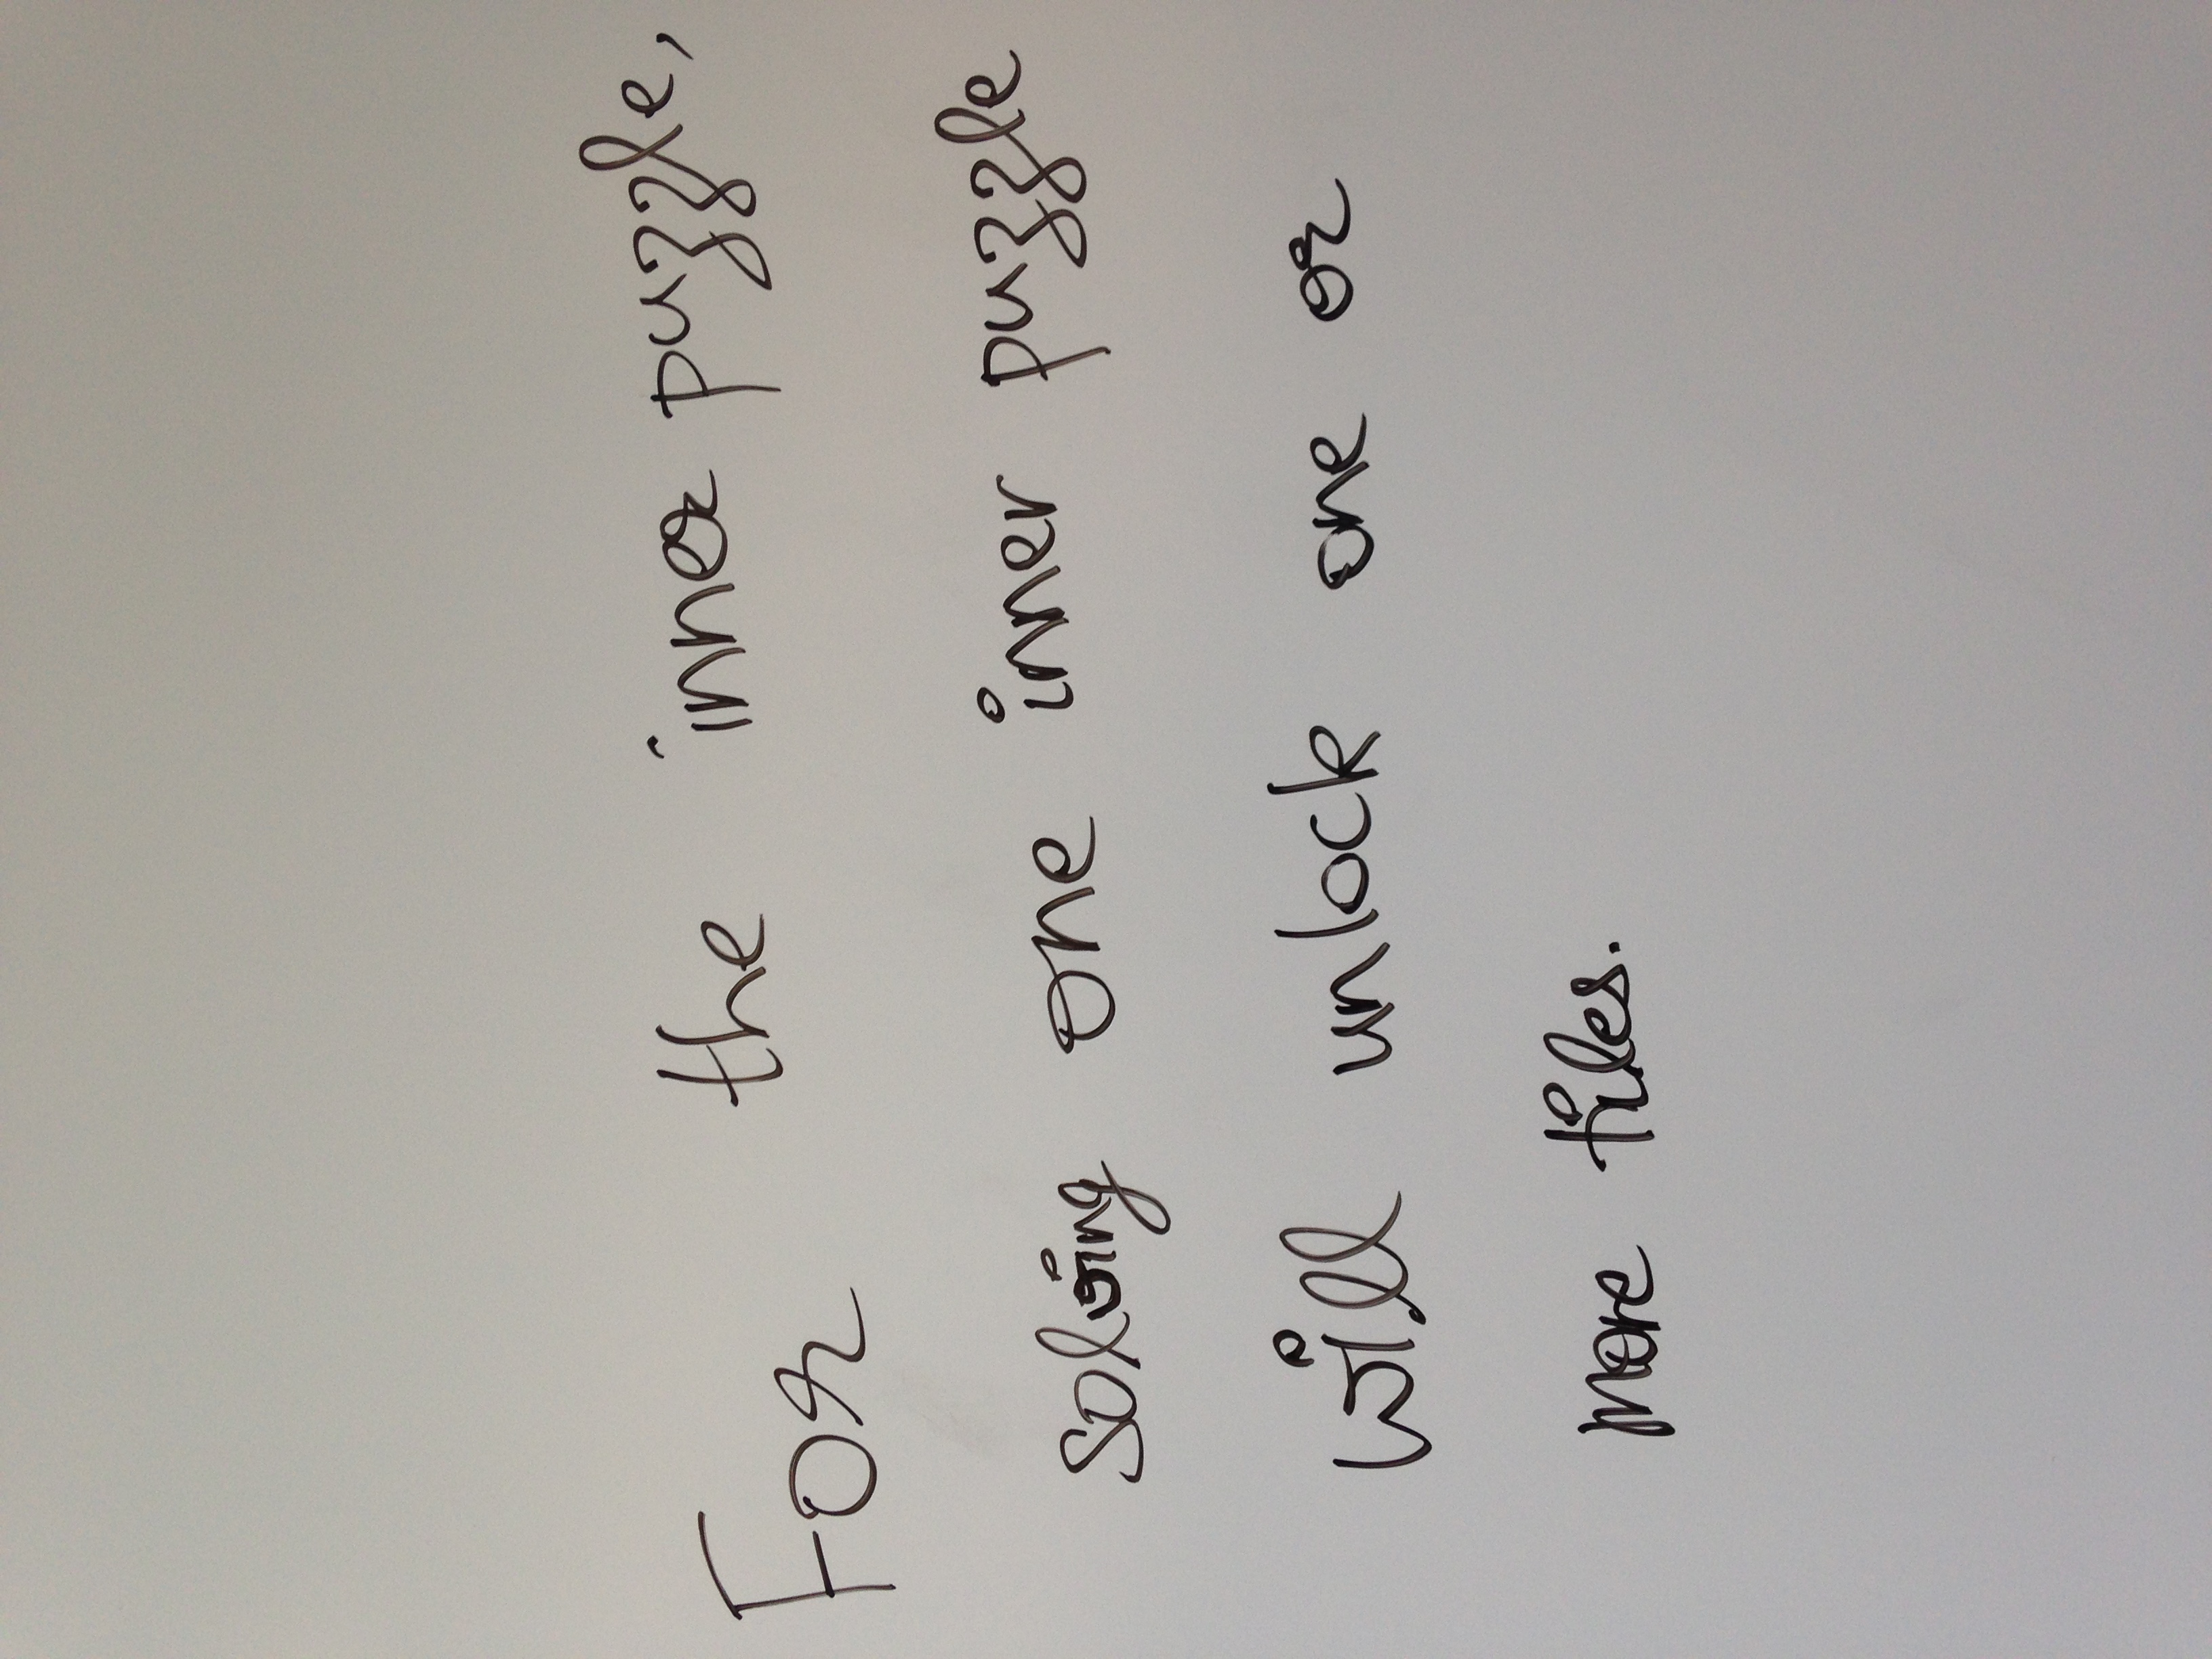 For the inner puzzle,
solving one inner puzzle
will unlock one or
more tiles.